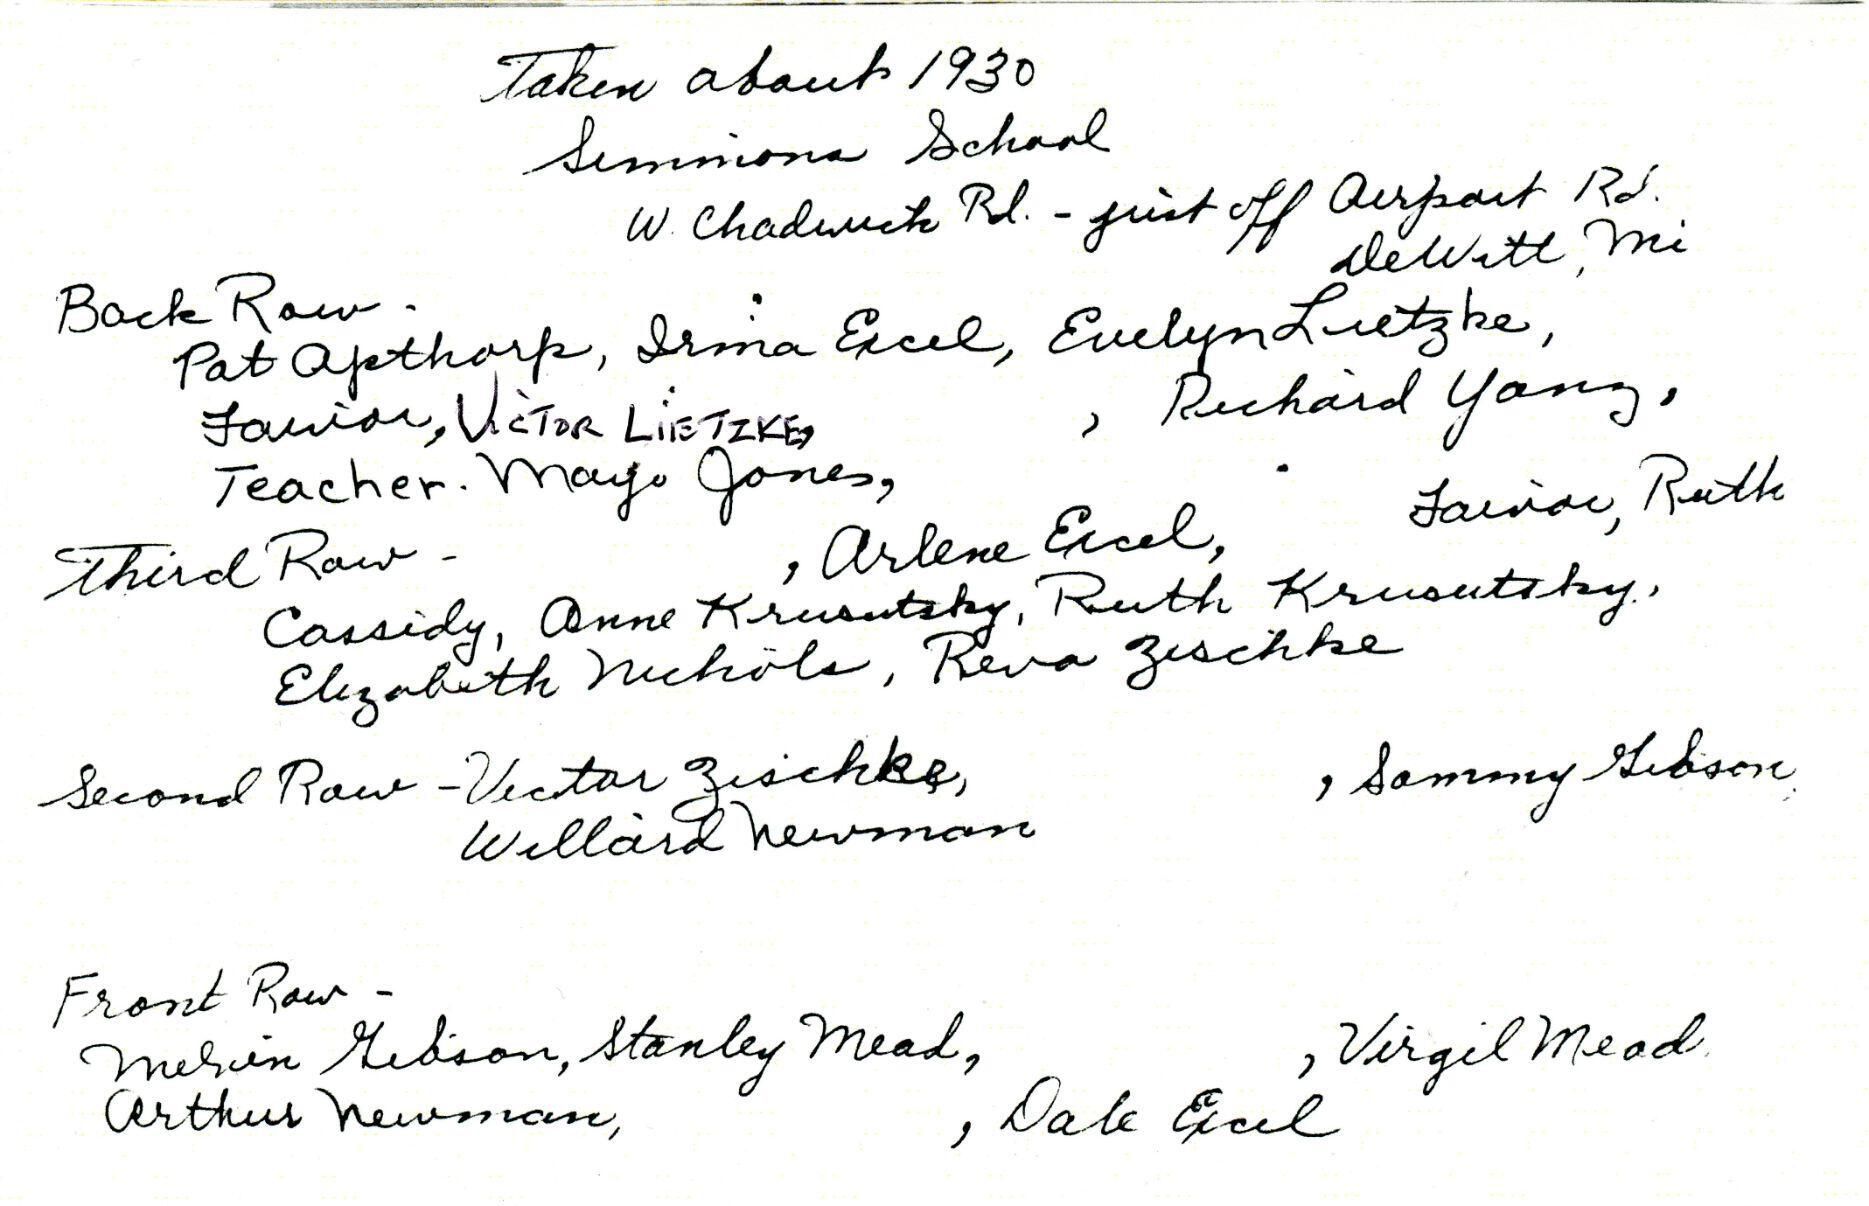 Taken about 1930
Simmons School
W. Chadwick Rd. - just off Airport Rd.
DeWitt, Mi
Back Row -
Pat Apthorp, Irma Excel, Evelyn Lietzke,
Favior, VICTOR LIETZKE, , Richard Yanz,
Teacher. Mayo Jones,
Third Row - , Arlene Excel, Favior, Ruth
Cassidy, Anne Krusutsky, Ruth Krusutsky,
Elizabeth Nichols, Reva Zischke
Second Row - Victor Zischke, , Sammy Gibson
Willard Newman
Front Row -
Melvin Gibson, Stanley Mead, , Virgil Mead
Arthur Newman, , Dale Excel